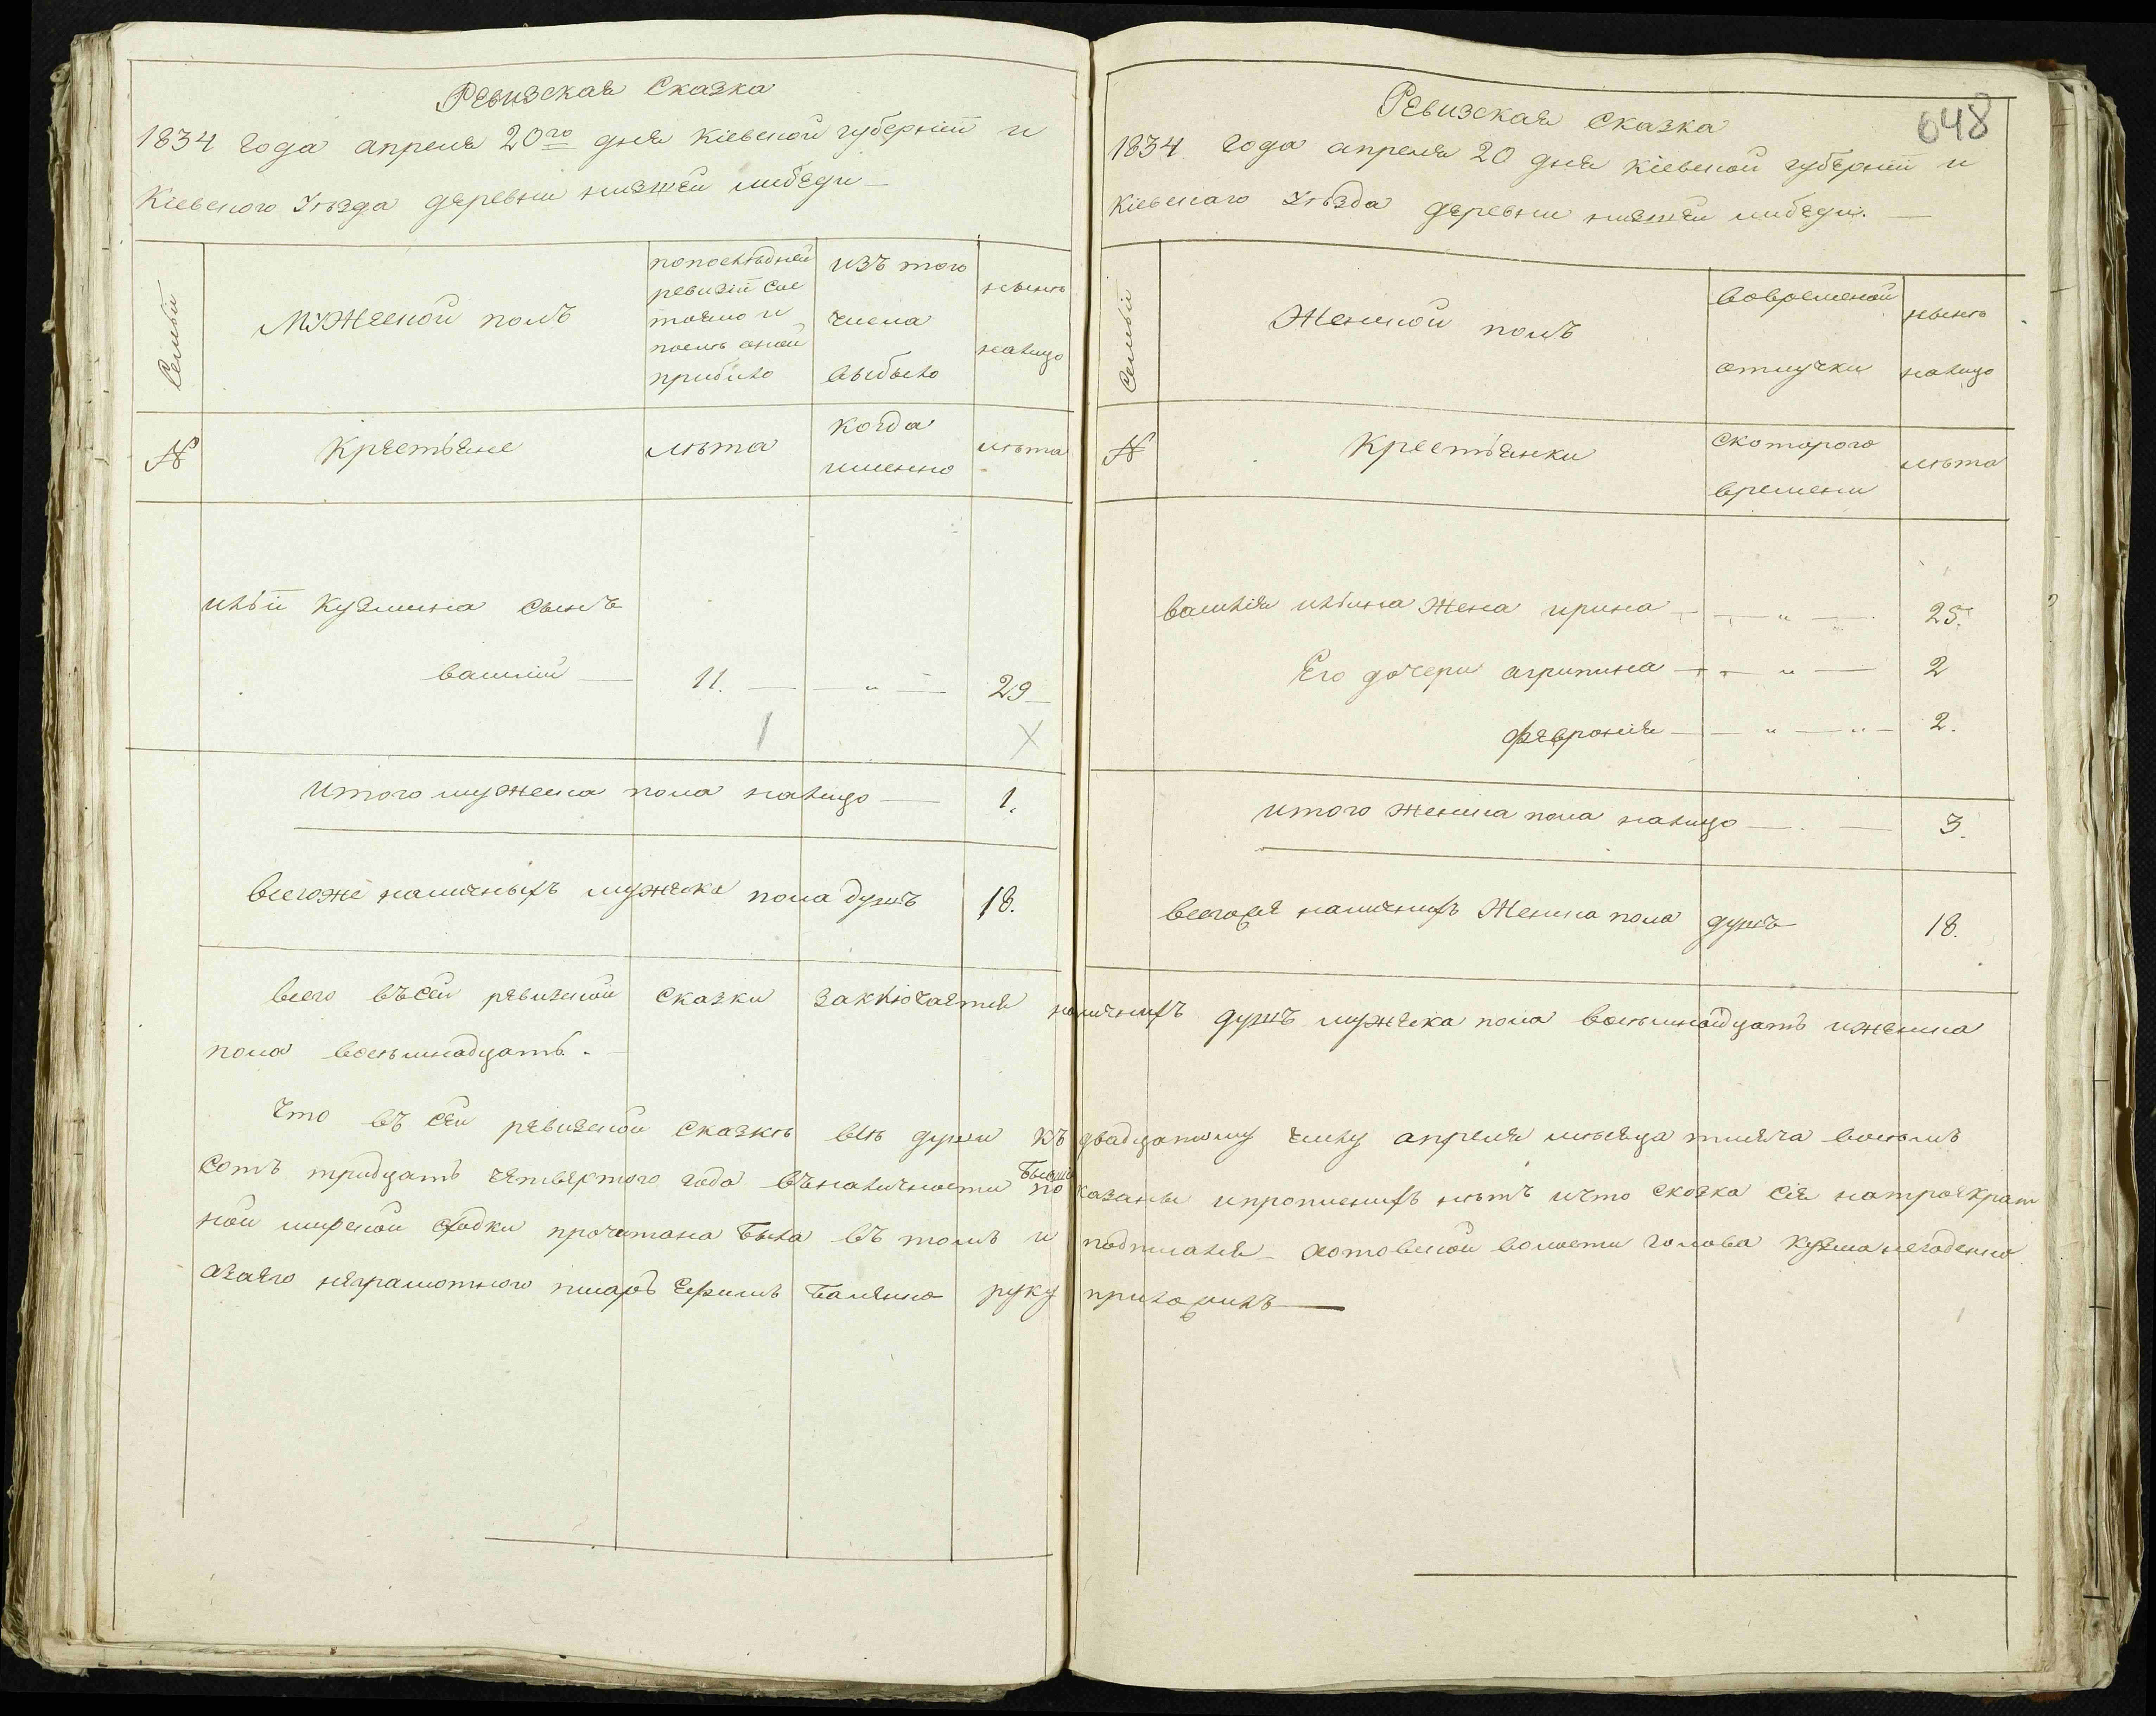 Ревизская Сказка
1834 года апреля 20го дня Кіевской губерніи и
Кіевского Уѣзда деревни нижней либеди
Семьи
Мужеской полъ
попослѣдней
ревизіи сос
тояло и
послѣ оной
прибыло
изъ того
числа
выбыло
нынѣ
налицо
№
Крестьяне
лѣта
когда
именно
лѣта
ильи Кузмина сынъ
василій — 11. — „ — 29
1 X
итого мужеска пола налицо — 1.
всегоже наличныхъ мужеска пола душъ 18.
648
Ревизская Сказка
1834 года апреля 20 дня Кіевской губерніи и
Кіевскаго Уѣзда деревни нижней либеди. —
Семьи
Женской полъ
вовременой
отлучки
нынѣ
налицо
№
Крестьянки
скоторого
времени
лѣта
василія ильина жена ирина — „ — 25.
Его дочери агрипина — „ — 2
феврония — „ — „ — 2.
итого женска пола налицо — 3.
всегоже наличнихъ Женска пола душъ 18.
всего въсей ревизской сказки заключается наличнихъ душъ мужеска пола восьмнадцать иженска
пола восьмнадцать.
Что въ сей ревизской сказкѣ всѣ души къ двадцатому числу апреля мѣсяца тисяча восемь
сотъ тридцать четвертого года въналичности бывши показаны ипрописнихъ нѣтъ ичто сказка сія натроекрат
ной мирской сходки прочитана была въ томъ и подписался хотовской волости голова Кузма негоденко
азаего неграмотного писарь Ефимъ Баленко руку приложилъ —